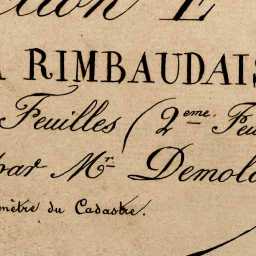 ction E
A RIMBAUDAIS
Feuilles (2eme. Feu
par Mr. Demola
mètre du Cadastre.